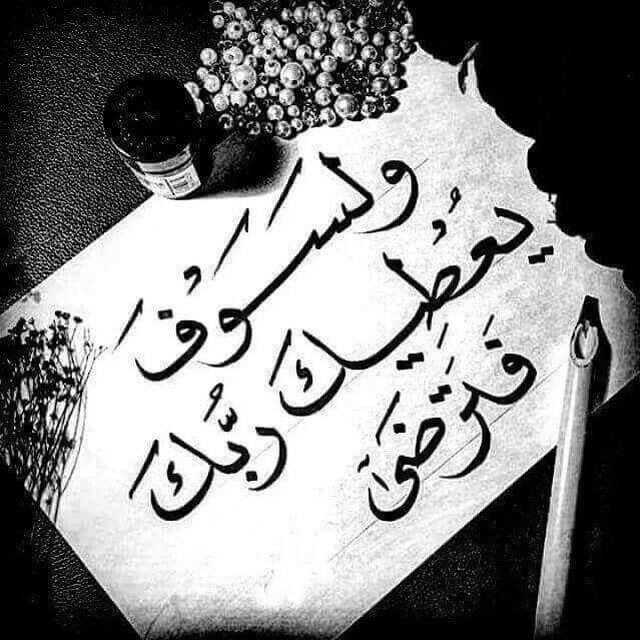 ولسَوْفَ
يُعْطِيكَ رَبُّكَ
فَتَرْضَىٰ